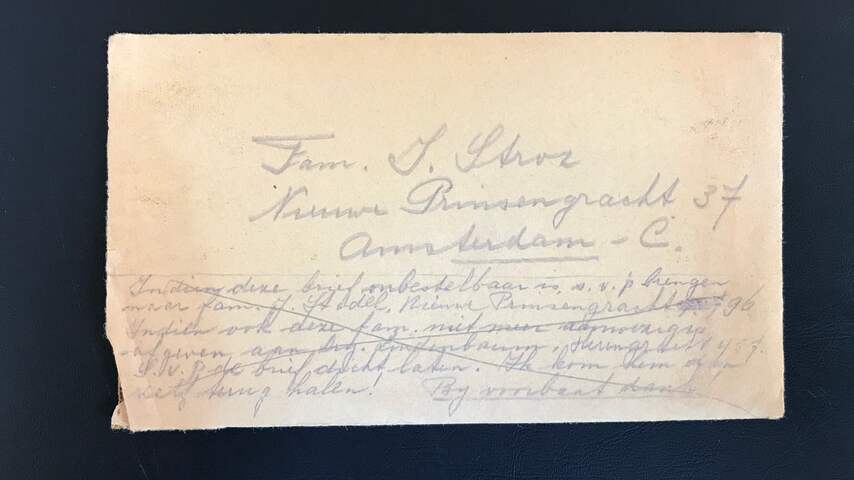 Fam. J. Stroz
Nieuwe Prinsengracht 37
Amsterdam - C.
Indien deze brief onbestelbaar is, s.v.p brengen
naar fam. J. Stodel, Nieuwe Prinsengracht 96
Indien ook deze fam. niet meer aanwezig is,
afgeven aan
S.v.p de brief dicht laten. Ik kom hem
zelf terug halen! By voorbaat dank